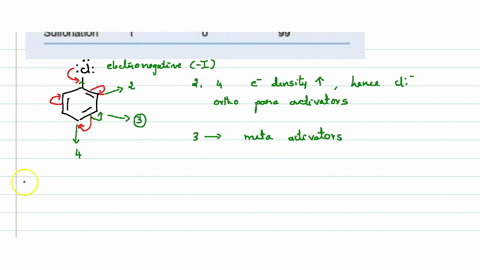 Sulfonation 1 0 99
:Cl: electronegative (-I)
2 2, 4 e⁻ density ↑, hence cl:⁻
ortho para activators
3
3 → meta activators
4